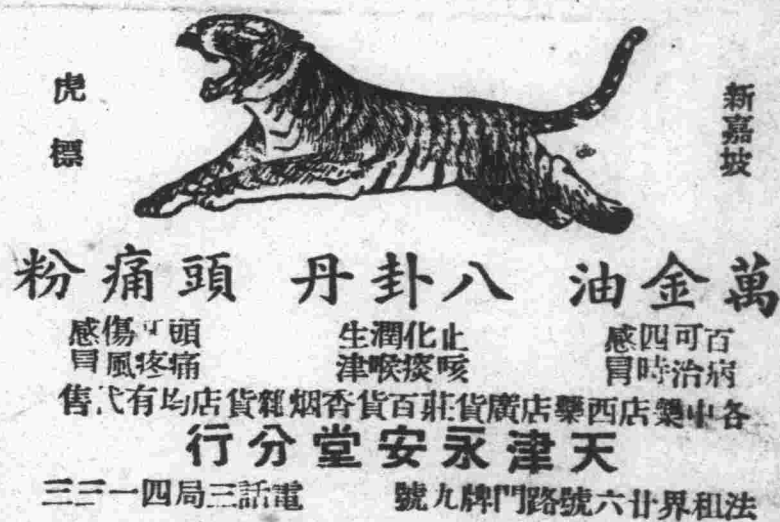 新嘉坡
虎標
萬金油 八卦丹 頭痛粉
百病可治四時感冒
止咳化痰潤喉生津
頭痛牙疼傷風感冒
各中藥店西藥店廣貨莊百貨香烟雜貨店均有代售
天津永安堂分行
法租界廿六號路門牌九號 電話三局四一三三